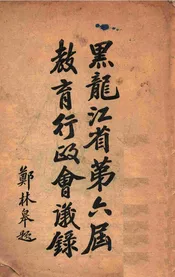 黑龍江省第六屆
教育行政會議錄
鄭林皋題